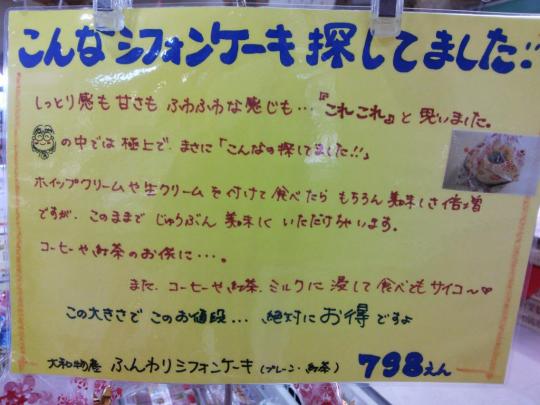 こんなシフォンケーキ探してました!!
しっとり感も甘さも ふわふわな感じも…『これこれ』と思いました。
の中では極上で、まさに「こんなの探してました!!」
ホイップクリームや生クリームを付けて食べたら もちろん美味しさ倍増
ですが、このままで じゅうぶん 美味しく いただけちゃいます。
コーヒーや紅茶のお供に…。
また、コーヒーや紅茶、ミルクに浸して食べてもサイコ～♡
この大きさで このお値段… 絶対にお得ですよ
大和物産 ふんわりシフォンケーキ(プレーン・紅茶) 798えん